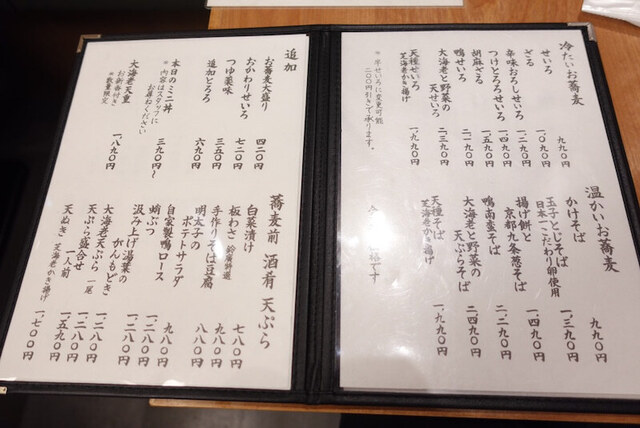 冷たいお蕎麦
せいろ 九九〇円
ざる 一、〇九〇円
辛味おろしせいろ 一、二九〇円
つけとろろせいろ 一、四九〇円
胡麻ざる 一、五九〇円
鴨せいろ 二、一九〇円
大海老と野菜の
天せいろ 二、三九〇円
天種せいろ
芝海老かき揚げ 一、九九〇円
二〇〇円引きで承ります。
温かいお蕎麦
かけそば 九九〇円
玉子とじそば
日本一こだわり卵使用 一、三九〇円
揚げ餅と
京都九条葱そば 一、四九〇円
鴨南蛮そば 二、二九〇円
大海老と野菜の
天ぷらそば 二、四九〇円
天種そば
芝海老かき揚げ 一、九九〇円
追加
お蕎麦大盛り 四二〇円
おかわりせいろ 七二〇円
つゆ薬味 三五〇円
追加とろろ 六九〇円
本日のミニ丼
※内容はスタッフに
お尋ねください 三九〇円〜
大海老天重
お新香付き
※数量限定 一、八九〇円
蕎麦前 酒肴 天ぷら
白菜漬け
板わさ 鈴廣特選 七八〇円
手作りそば豆腐 九八〇円
明太子の
ポテトサラダ 八八〇円
自家製鴨ロース 九八〇円
蛸ぶつ 一、二八〇円
汲み上げ湯葉の
がんもどき 一、二八〇円
大海老天ぷら 一尾 一、二八〇円
天ぷら盛合せ 一人前 一、五九〇円
天ぬき 芝海老かき揚げ 一、七〇〇円